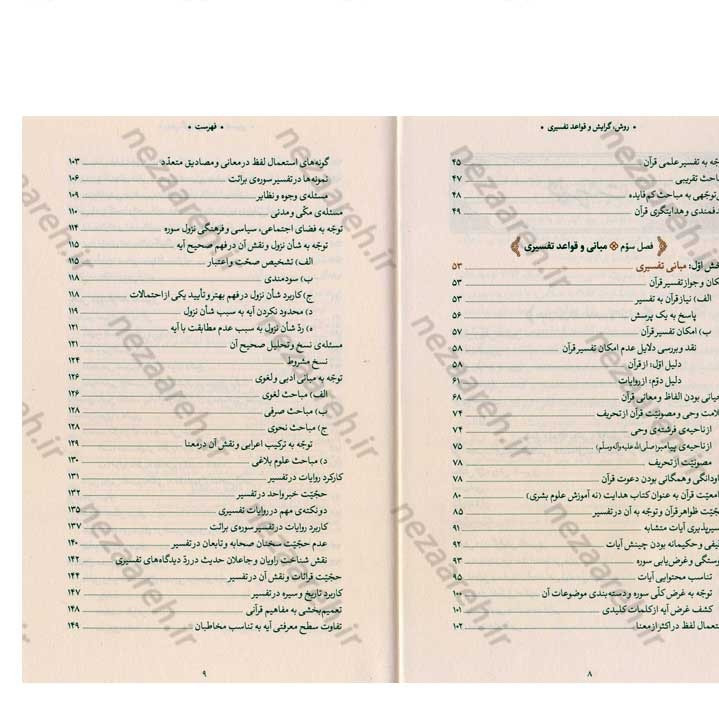 • روش، گرایش و قواعد تفسیری •
به تفسیر علمی قرآن ۴۵
تقریبی ۴۷
به مباحث کم‌فایده ۴۸
و هدایتگری قرآن ۴۹
فصل سوّم مبانی و قواعد تفسیری
اوّل: مبانی تفسیری ۵۳
و جواز تفسیر قرآن ۵۳
الف) نیاز قرآن به تفسیر ۵۳
پاسخ به یک پرسش ۵۶
ب) امکان تفسیر قرآن ۵۷
نقد و بررسی دلایل عدم امکان تفسیر قرآن ۵۸
دلیل اوّل: از قرآن ۵۸
دلیل دوّم: از روایات ۶۱
بودن الفاظ و معانی قرآن ۶۸
وحی و مصونیّت قرآن از تحریف ۷۴
از ناحیه‌ی فرشته‌ی وحی ۷۴
از ناحیه‌ی پیامبر (صلی الله علیه و آله و سلم) ۷۵
مصونیّت از تحریف ۷۸
و همگانی بودن دعوت قرآن ۷۸
قرآن به عنوان کتاب هدایت (نه آموزش علوم بشری) ۸۰
ظواهر قرآن و توجّه به آن در تفسیر ۸۵
آیات متشابه ۹۱
و حکیمانه بودن چینش آیات ۹۲
و غرض‌یابی سوره ۹۳
تناسب محتوایی آیات ۹۵
توجّه به غرض کلّی سوره و دسته‌بندی موضوعات آن ۱۰۰
کشف غرض آیه از کلمات کلیدی ۱۰۱
لفظ در اکثر از معنا ۱۰۲
۸
• فهرست •
گونه‌های استعمال لفظ در معانی و مصادیق متعدّد ۱۰۳
نمونه‌ها در تفسیر سوره‌ی برائت ۱۰۶
مسئله‌ی وجوه و نظایر ۱۰۹
مسئله‌ی مکّی و مدنی ۱۱۰
توجّه به فضای اجتماعی، سیاسی و فرهنگی نزول سوره ۱۱۴
توجّه به شأن نزول و نقش آن در فهم صحیح آیه ۱۱۵
الف) تشخیص صحّت و اعتبار ۱۱۵
ب) سودمندی ۱۱۸
ج) کاربرد شأن نزول در فهم بهتر و تأیید یکی از احتمالات ۱۱۸
د) محدود نکردن آیه به سبب شأن نزول ۱۱۹
ه) ردّ شأن نزول به سبب عدم مطابقت با آیه ۱۲۱
مسئله‌ی نسخ و تحلیل صحیح آن ۱۲۱
نسخ مشروط ۱۲۴
توجّه به مبانی ادبی و لغوی ۱۲۶
الف) مباحث لغوی ۱۲۶
ب) مباحث صرفی ۱۲۸
ج) مباحث نحوی ۱۲۸
توجّه به ترکیب اعرابی و نقش آن در معنا ۱۲۹
د) مباحث علوم بلاغی ۱۳۰
کارکرد روایات در تفسیر ۱۳۱
حجیّت خبر واحد در تفسیر ۱۳۲
دو نکته‌ی مهم در روایات تفسیری ۱۳۵
کاربرد روایات در تفسیر سوره‌ی برائت ۱۳۷
عدم حجیّت سخنان صحابه و تابعان در تفسیر ۱۴۰
نقش شناخت راویان و جاعلان حدیث در ردّ دیدگاه‌های تفسیری ۱۴۲
حجیّت قرائات و نقش آن در تفسیر ۱۴۴
کاربرد تاریخ و سیره در تفسیر ۱۴۷
تعمیم‌بخشی به مفاهیم قرآنی ۱۴۸
تفاوت سطح معرفتی آیه به تناسب مخاطبان ۱۴۹
۹
nezaareh.ir